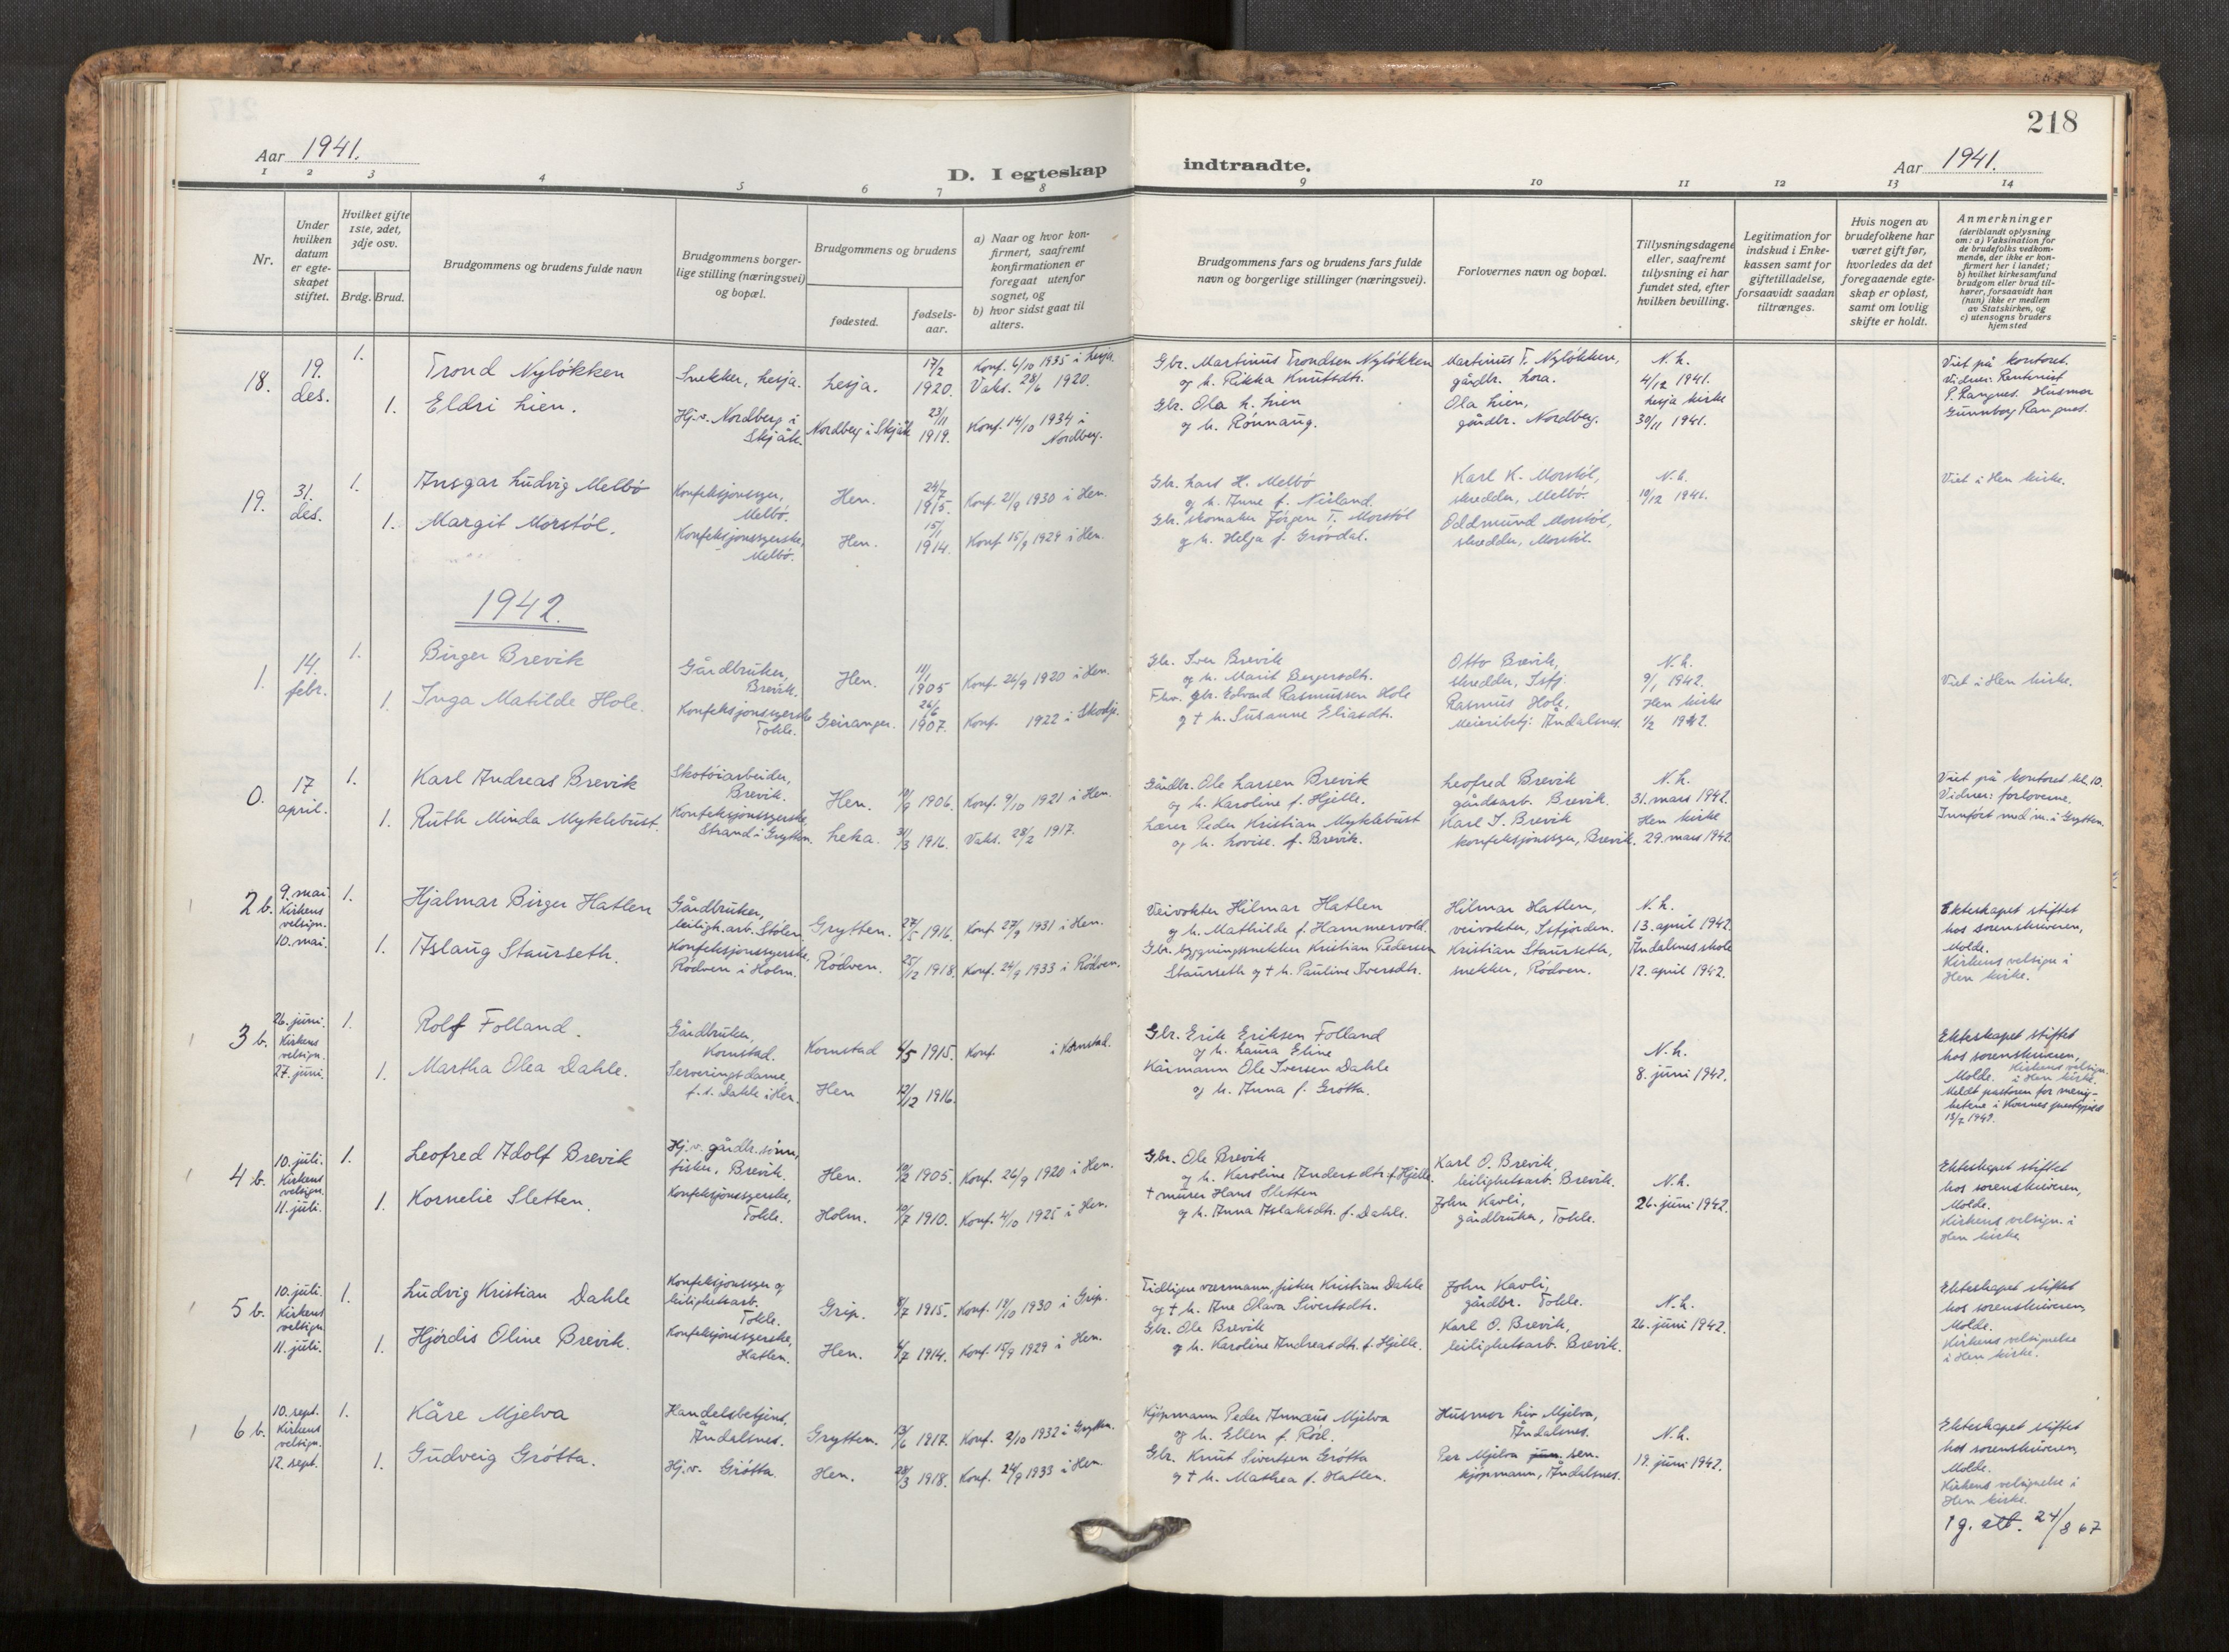 218
Aar 1941.
D. I egteskap indtraadte.
Aar 1941.
1 2 3 4 5 6 7 8 9 10 11 12 13 14
Nr.
Under hvilken datum er egteskapet stiftet.
Hvilket gifte 1ste, 2det, 3dje osv.
Brdg. Brud.
Brudgommens og brudens fulde navn
Brudgommens borgerlige stilling (næringsvei) og bopæl.
Brudgommens og brudens
fødested.
fødselsaar.
a) Naar og hvor konfirmert, saafremt konfirmationen er foregaat utenfor sognet, og
b) hvor sidst gaat til alters.
Brudgommens fars og brudens fars fulde navn og borgerlige stillinger (næringsvei).
Forlovernes navn og bopæl.
Tillysningsdagene eller, saafremt tillysning ei har fundet sted, efter hvilken bevilling.
Legitimation for indskud i Enkekassen samt for giftetilladelse, forsaavidt saadan tiltrænges.
Hvis nogen av brudefolkene har været gift før, hvorledes da det foregaaende egteskap er opløst, samt om lovlig skifte er holdt.
Anmerkninger (deriblandt oplysning om: a) Vaksination for de brudefolks vedkommende, der ikke er konfirmert her i landet; b) hvilket kirkesamfund brudgom eller brud tilhører, forsaavidt han (hun) ikke er medlem av Statskirken, og c) utensogns bruders hjemsted
18. 19. des. 1. Trond Nyløkken
Snekker, Lesja. Lesja. 17/2 1920. Konf. 6/10 1935 i Lesja. Vaks. 28/6 1920.
Gbr. Martinus Trondsen Nyløkken og h. Rikka Knutsdtr.
Martinus T. Nyløkken, gårdbr. Lora.
N.h. 4/12 1941.
1. Eldri Lien.
Hj.v. Nordberg i Skjåk. Nordberg i Skjåk 23/11 1919. Konf. 14/10 1934 i Nordberg.
Gbr. Ola h. Lien og h. Rønnaug.
Ola Lien, gårdbr. Nordberg.
Lesja kirke 30/11 1941.
Viet på kontoret. Vidner: Rentenist P. Rangnes. Husmor Gunnborg Rangnes.
19. 31. des. 1. Ansgar Ludvig Melbø
Konfeksjonssyer, Melbø. Hen. 24/7 1915. Konf. 21/9 1930 i Hen.
Gbr. Lars H. Melbø og h. Anne f. Nisland
Karl K. Morstøl, skredder, Melbø.
N.h. 10/12 1941.
1. Margit Morstøl.
Konfeksjonssyerske, Melbø. Hen. 15/1 1914. Konf 15/9 1929 i Hen.
Gbr. skomaker Jørgen T. Morstøl og h. Helja f. Grøvdal.
Oddmund Morstøl, skredder, Morstøl.
Viet i Hen kirke.
1942.
1. 14. febr. 1. Birger Brevik
Gårdbruker, Brevik. Hen. 11/1 1905 Konf. 26/9 1920 i Hen.
Gbr. Iver Brevik og h. Marit Bergersdtr.
Otto Brevik, skredder, Isfj.
N.h. 9/1 1942.
1. Inga Matilde Hole.
Konfeksjonssyerske Tokle. Geiranger. 26/6 1907. Konf 1922 i Skodje.
Fhv. gbr. Edvard Rasmussen Hole og † h. Susanne Eliasdtr.
Rasmus Hole, Meieribetj. Åndalsnes.
Hen kirke 1/2 1942.
Viet i Hen kirke.
0. 17 april. 1. Karl Andreas Brevik
Skotøiarbeider, Brevik. Hen. 19/9 1906. Konf. 9/10 1921 i Hen.
Gårdbr. Ole Larsen Brevik og h. Karoline f. Hjelle.
Leofred Brevik gårdsarb. Brevik.
N.h. 31. mars 1942.
1. Ruth Minda Myklebust.
Konfeksjonssyerske, Strand i Grytten. Leka. 31/3 1916. Vaks. 28/2 1917.
Lærer Peder Kristian Myklebust og h. Lovise. f. Brevik.
Karl I. Brevik konfeksjonssyer, Brevik.
Hen kirke 29. mars 1942.
Viet på kontoret kl. 10. Vidner: forloverne. Innført med nr. i Grytten.
2 b. 9. mai. Kirkens velsign. 10. mai. 1. Hjalmar Birger Hatlen
Gårdbruker, leiligh.arb. Stølen Grytten. 27/5 1916. Konf 27/9 1931 i Hen.
Veivokter Hilmar Hatlen og h. Mathilde f. Hammervold.
Hilmar Hatlen, veivokter, Isfjorden.
N.h. 13. april 1942.
1. Aslaug Staurseth.
Konfeksjonssyerske, Rødven i Holm. Rødven. 25/12 1918. Konf. 24/9 1933 i Rødven.
Gbr. bygningssnekker Kristian Pedersen Staurseth og † h. Pauline Iversdtr.
Kristian Staurseth, snekker, Rødven.
Åndalsnes skole 12. april 1942.
Ekteskapet stiftet hos sorenskriveren, Molde. Kirkens velsign i Hen kirke.
3 b. 26. juni. Kirkens velsign. 27. juni. 1. Rolf Folland.
Gårdbruker, Kornstad. Kornstad 4/5 1915. Konf. i Kornstad.
Gbr. Erik Eriksen Folland og h. Laura Eline
1. Martha Olea Dahle.
Serveringsdame, f.t. Dahle i Hen. Hen 12/12 1916.
Kårmann Ole Iversen Dahle og h. Anna f. Grøtta.
N.h. 8. juni 1942.
Ekteskapet stiftet hos sorenskriveren, Molde. Kirkens velsign. i Hen kirke. Meldt pastoren for menighetene i Kornes prestegjeld 13/7 1942.
4 b. 10. juli. Kirkens velsign. 11. juli. 1. Leofred Adolf Brevik
Hj.v. gårdbr.sønn, fisker, Brevik. Hen. 19/2 1905. Konf. 26/9 1920 i Hen.
Gbr. Ole Brevik og h. Karoline Andersdtr. f. Hjelle.
Karl O. Brevik, leilighetsarb. Brevik.
N.h. 26. juni 1942.
1. Kornelie Sletten.
Konfeksjonssyerske, Tokle. Holm. 10/7 1910. Konf. 4/10 1925 i Hen.
† murer Hans Sletten og h. Anna Aslaksdtr. f. Dahle.
John Kavli, gårdbruker, Tokle.
Ekteskapet stiftet hos sorenskriveren, Molde. Kirkens velsign. i Hen kirke
5 b. 10. juli. Kirkens velsign 11. juli. 1. Ludvig Kristian Dahle
Konfeksjonssyer og leilighetsarb. Tokle. Grip. 8/7 1915. Konf. 19/10 1930 i Grip.
Tidligere værmann, fisker Kristian Dahle og † h. Ane Olava Sivertsdtr.
John Kavli, gårdbr. Tokle.
N.h. 26. juni 1942.
1. Hjørdis Oline Brevik.
Konfeksjonssyerske, Hatlen. Hen. 4/7 1914. Konf. 15/9 1929 i Hen.
Gbr. Ole Brevik og h. Karoline Andreasdtr. f. Hjelle.
Karl O. Brevik, leilighetsarb. Brevik.
Ekteskapet stiftet hos sorenskriveren, Molde. Kirkens velsignelse i Hen kirke.
6 b. 10. sept. Kirkens velsign. 12. sept. 1. Kåre Mjelva
Handelsbetjent, Åndalsnes. Grytten. 13/6 1917. Konf. 2/10 1932 i Grytten.
Kjøpmann Peder Annæus Mjelva og h. Ellen f. Rød.
Husmor Liv Mjelva, Åndalsnes.
N.h. 19. juni 1942.
1. Gudveig Grøtta.
Hj.v. Grøtta. Hen. 28/3 1918. Konf. 24/9 1933 i Hen.
Gbr. Knut Sivertsen Grøtta og † h. Mathea f. Hatlen.
Per Mjelva jun. sen. kjøpmann, Åndalsnes.
Ekteskapet stiftet hos sorenskriveren, Molde. Kirkens velsignelse i Hen kirke.
1 g. att. 24/8 67